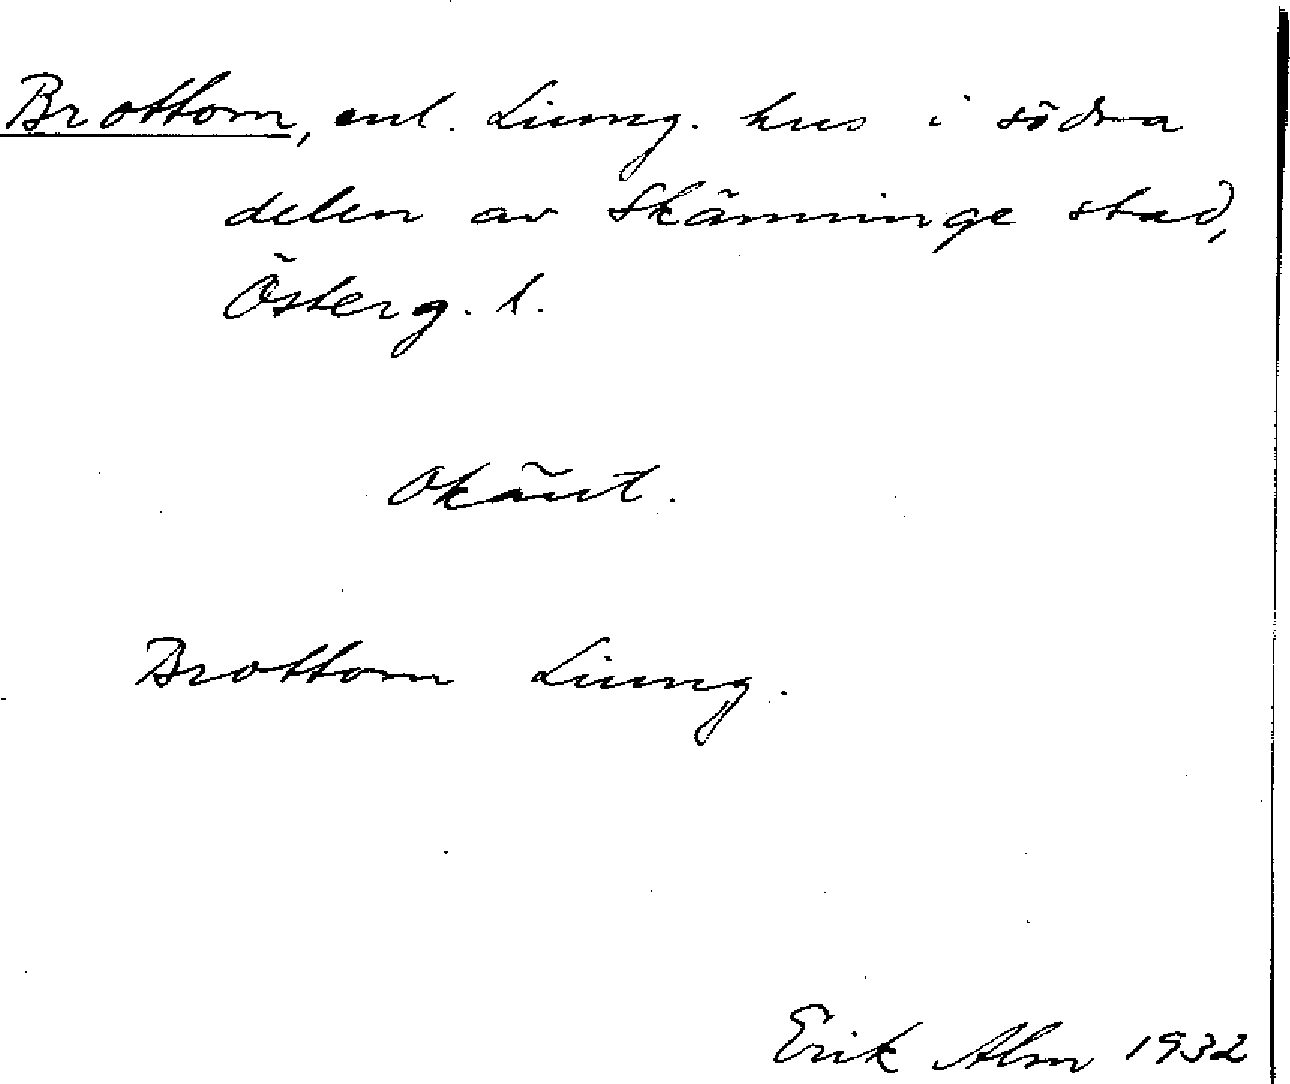 Brottom, enl. Liung. hus i södra
delen av Skänninge stad,
Österg. l.
Okänt.
Brottom Liung.
Erik Alm 1932